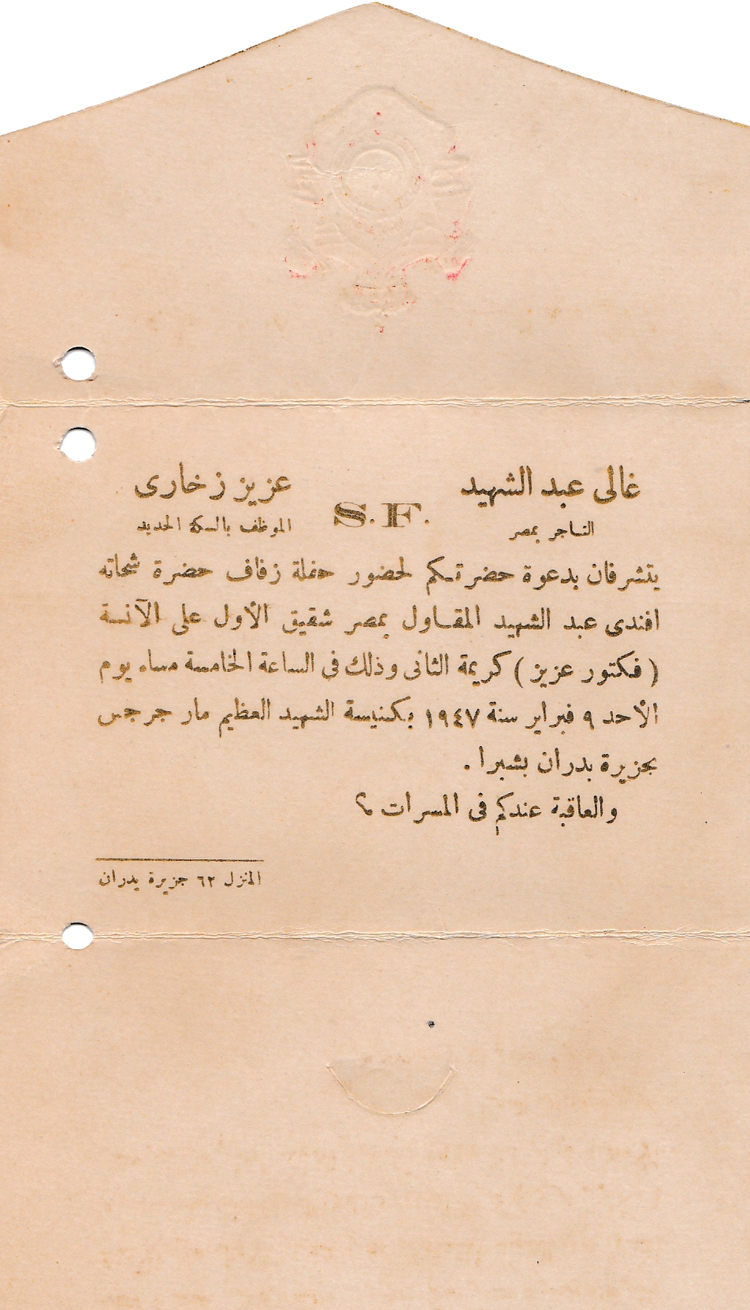 غالى عبد الشهيد
التاجر بمصر
S.F.
عزيز زخارى
الموظف بالسكة الحديد
يتشرفان بدعوة حضرتكم لحضور حفلة زفاف حضرة شحاته
افندى عبد الشهيد المقاول بمصر شقيق الأول على الآنسة
( فكتور عزيز ) كريمة الثانى وذلك فى الساعة الخامسة مساء يوم
الأحد ٩ فبراير سنة ١٩٤٧ بكنيسة الشهيد العظيم مار جرجس
بجزيرة بدران بشبرا .
والعاقبة عندكم فى المسرات
المنزل ٦٢ جزيرة بدران